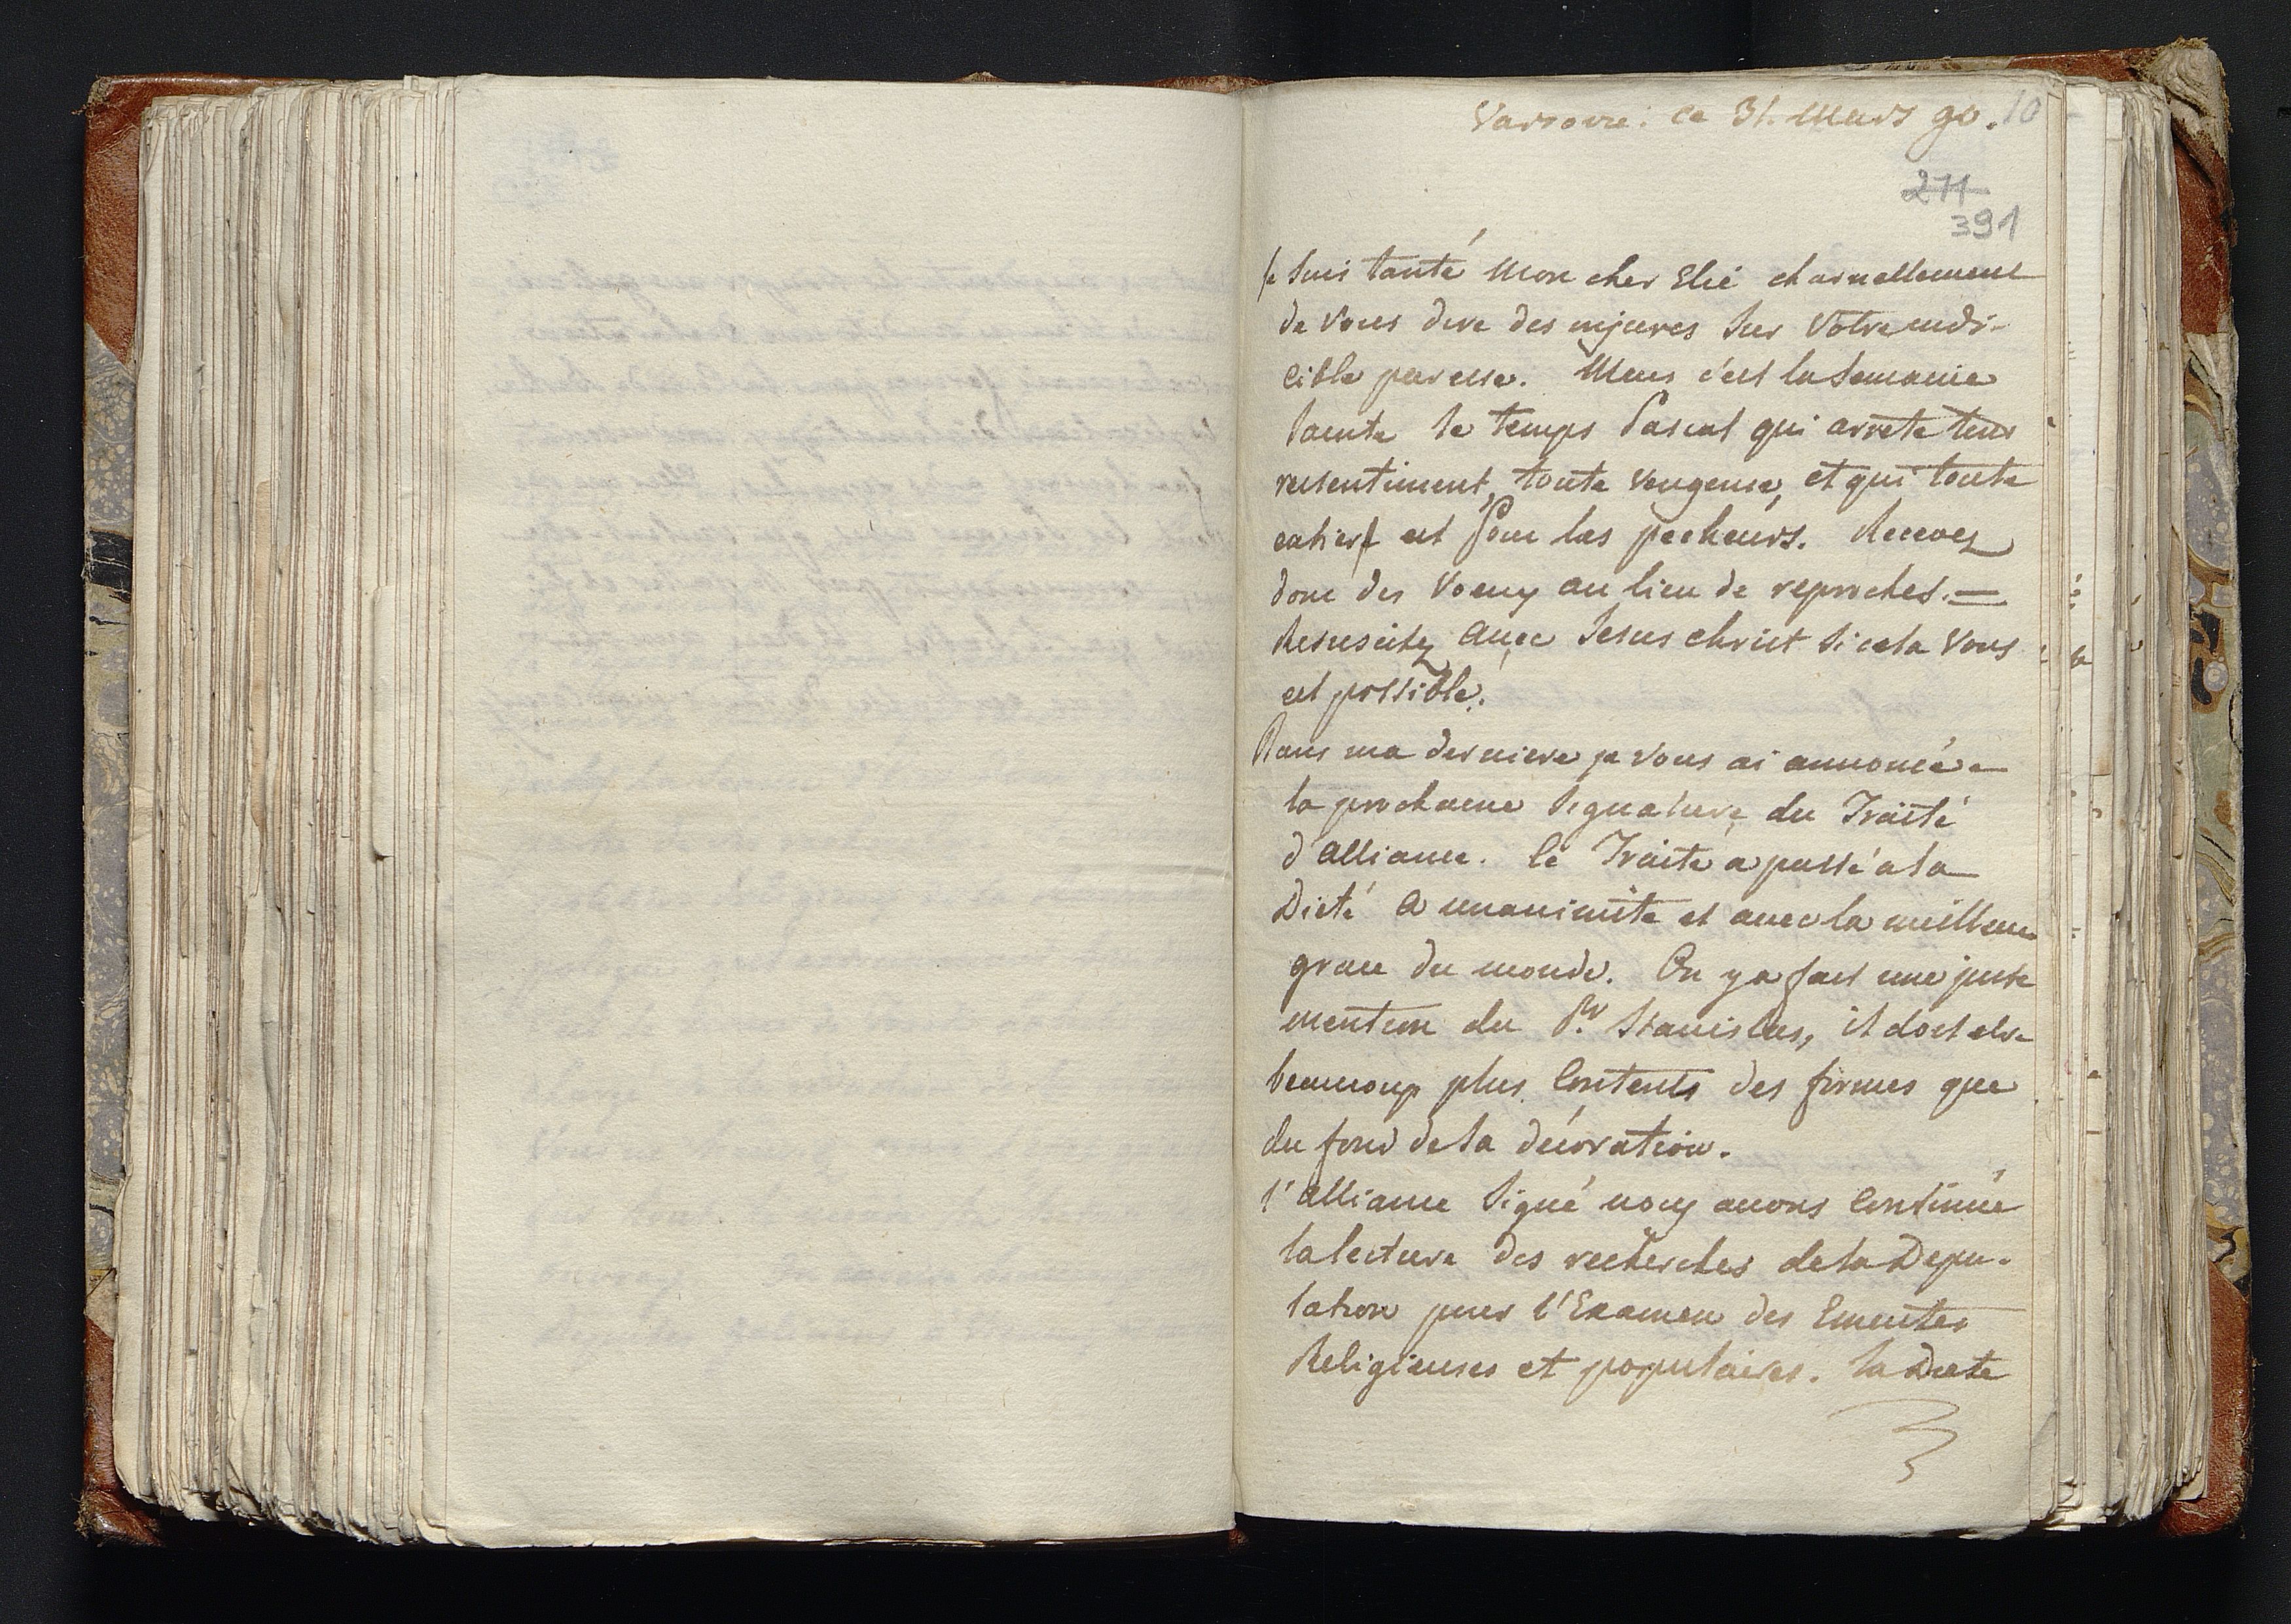 Varsovie: ce 31. Mars 90. 10
271
391
Je suis tanté Mon cher Elié charnellement
de Vous dire des injures sur Votre indi-
cible paresse. Mais c'est la Semaine
Sainte le temps Pascal qui arrete tous
ressentiment, toute vengence, et qui toute
entiere est pour les pecheurs. Recevez
donc des Voeux au lieu de reproches. =
Resuscitez avec Jesus christ si cela Vous
est possible.
Dans ma derniere je Vous ai annoncée
la prochaine signature du Traité
d'alliance. le Traite a passé a la
Dieté a unanimite et avec la meilleure
grace du monde. On y a fait une juste
mention du Pce Stanislas, il doit etre
beaucoup plus Contents des formes que
du fond de la décoration.
l'alliance signé nous avons Continué
la lecture des recherches de la Depu-
tation pour l'Examen des Emeutes
Religieuses et populaires. la Diete